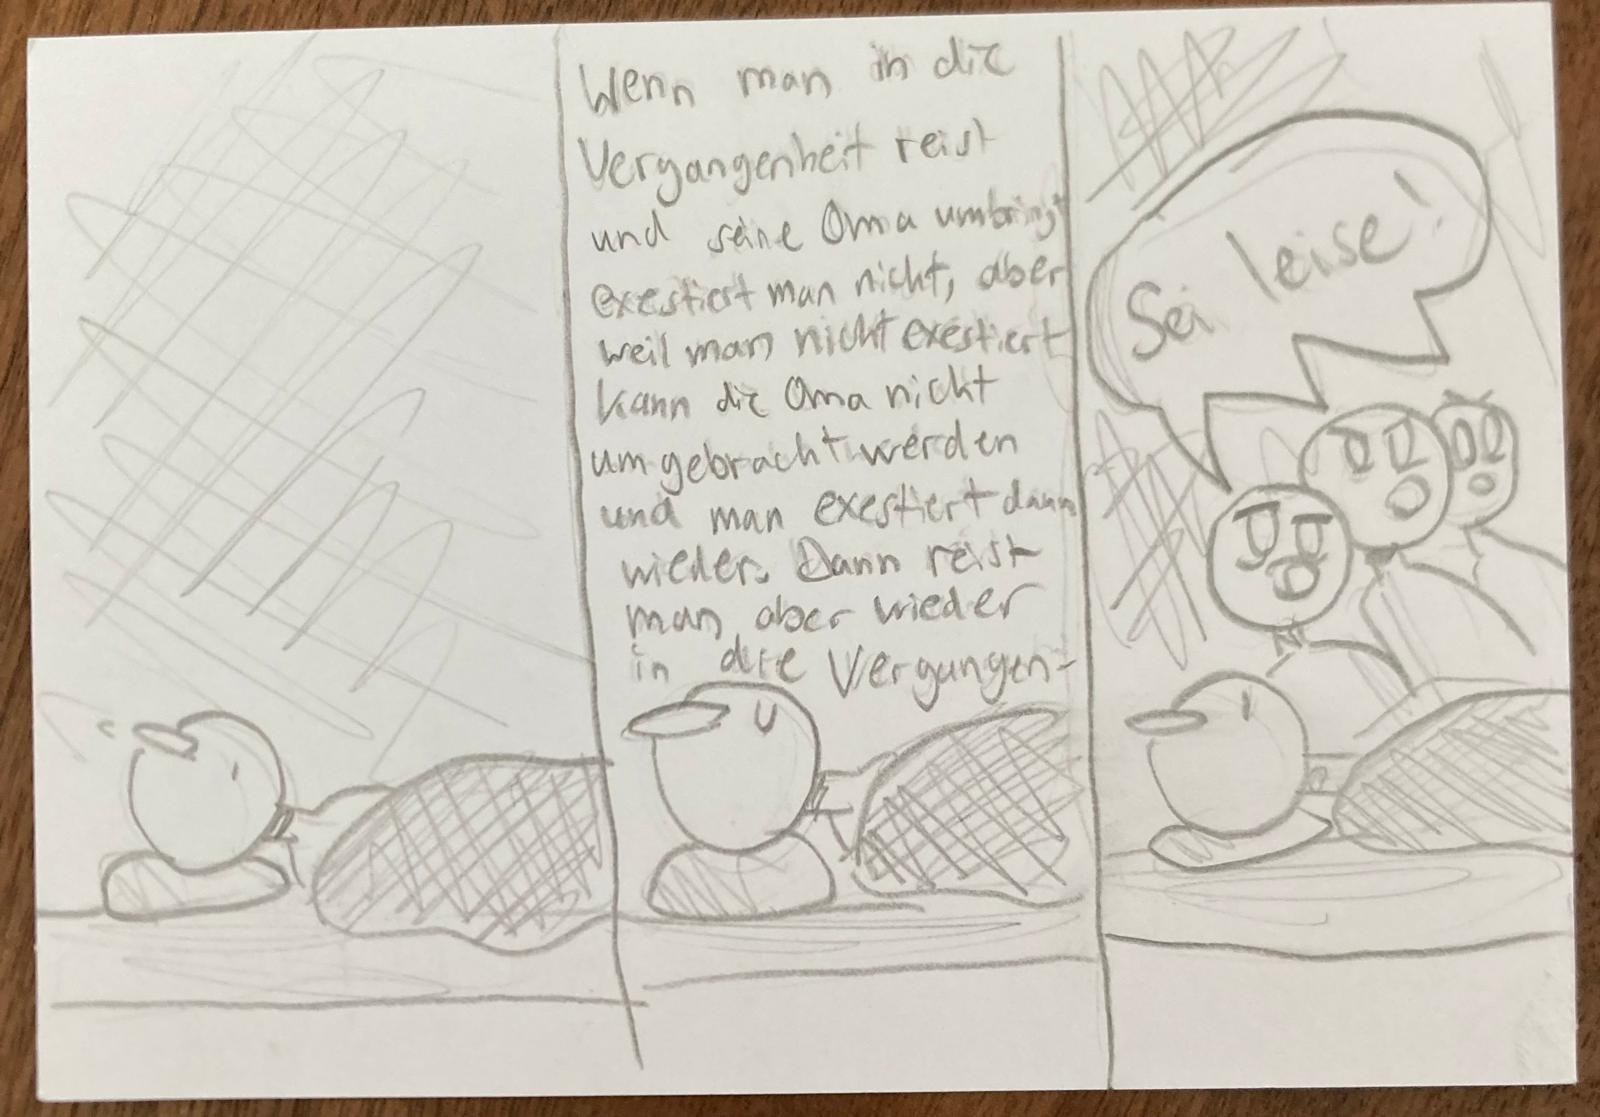 Wenn man in die
Vergangenheit reist
und seine Oma umbringt
exestiert man nicht, aber
weil man nicht exestiert
kann die Oma nicht
umgebracht werden
und man exestiert dann
wieder. Dann reist
man aber wieder
in die Vergangen-
Sei leise!